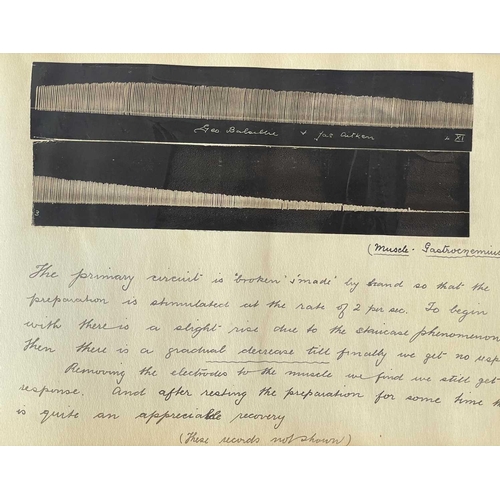 Geo & Jas Aitken
2 XI
3
(Muscle - Gastrocnemius
The primary circuit is "broken" & "made" by hand so that the
preparation is stimulated at the rate of 2 per sec. To begin
with there is a slight rise due to the staircase phenomenon
Then there is a gradual decrease till finally we get no resp
Removing the electrodes to the muscle we find we still get
response. And after resting the preparation for some time th
is quite an appreciable recovery
(These records not shown)